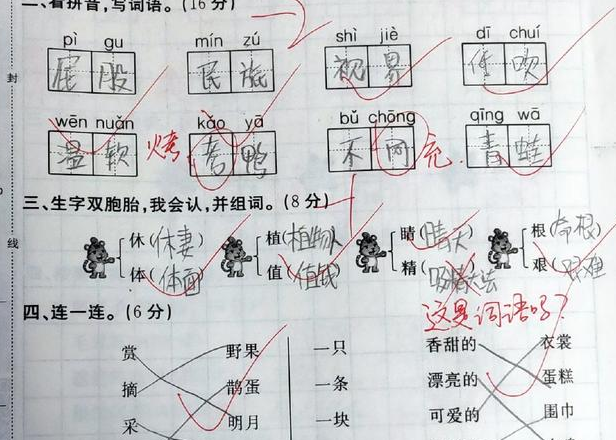 二、看拼音，写词语。(16分)
pì gu mín zú shì jiè dī chuí
屁股 民族 视界
wēn nuǎn kǎo yā bǔ chōng qīng wā
温软 烤 鸭 不 充 青蛙
三、生字双胞胎，我会认，并组词。(8分)
休(休妻) 植(植物人 晴(晴天) 根(命根)
体(体面) 值(值钱) 精( 艰(艰难
这是词语吗？
四、连一连。(6分)
赏 野果 一只 香甜的 衣裳
摘 鹊蛋 一条 漂亮的 蛋糕
采 明月 一块 可爱的 围巾
封
线